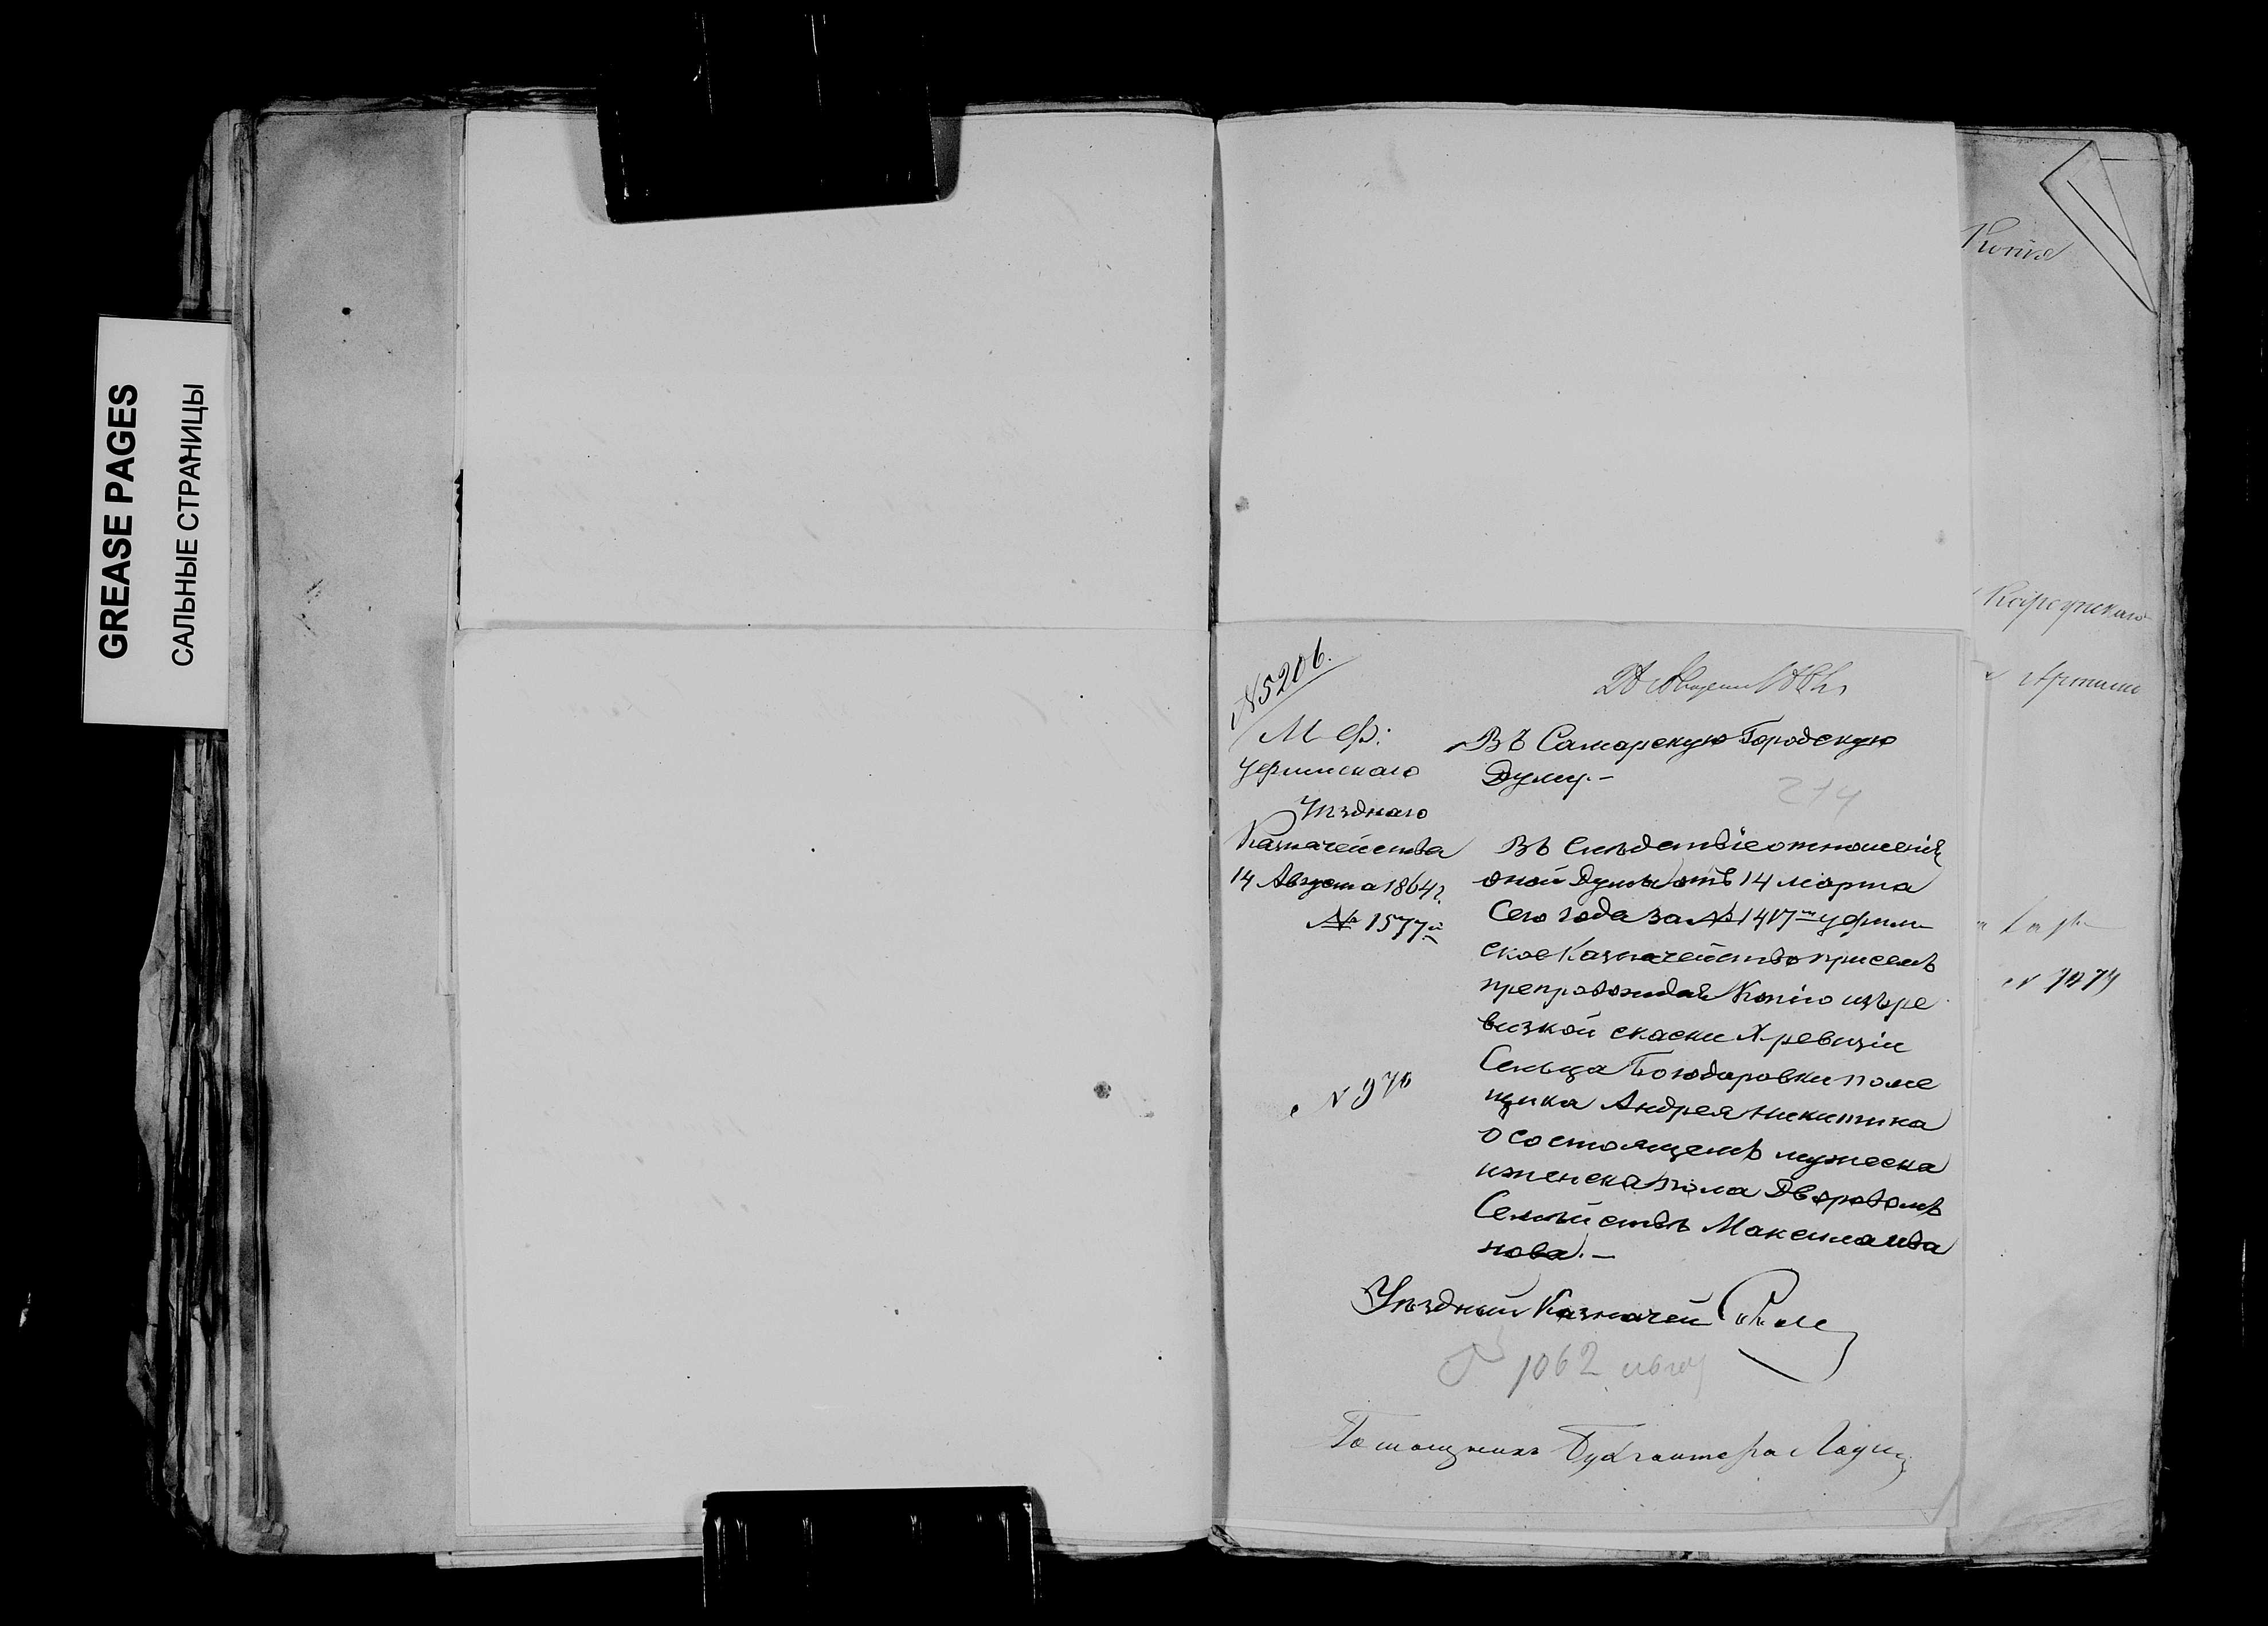 GREASE PAGES
САЛЬНЫЕ СТРАНИЦЫ
№5206.
М. Ф.
Уфимскаго
Уѣзднаго
Казначейства
14 Августа 1864 г.
№ 1577й
№ 970
Въ Самарскую Городскую
Думу.-
274
Въ Следствіе отношенія
оной Думы отъ 14 марта
Сего года за № 1417м Уфим
ское Казначейство присемъ
препровождая Копію изъ ре
визкой скаски X ревизіи
Сельца Богодаровки поме
щика Андрея Никитина
о состоящемъ мужеска
и женска пола Дворовомъ
Семействѣ Максима Ива
нова.-
Уѣздный Казначей
1062
Помощникъ Бухгалтера
Копія
№ 7474